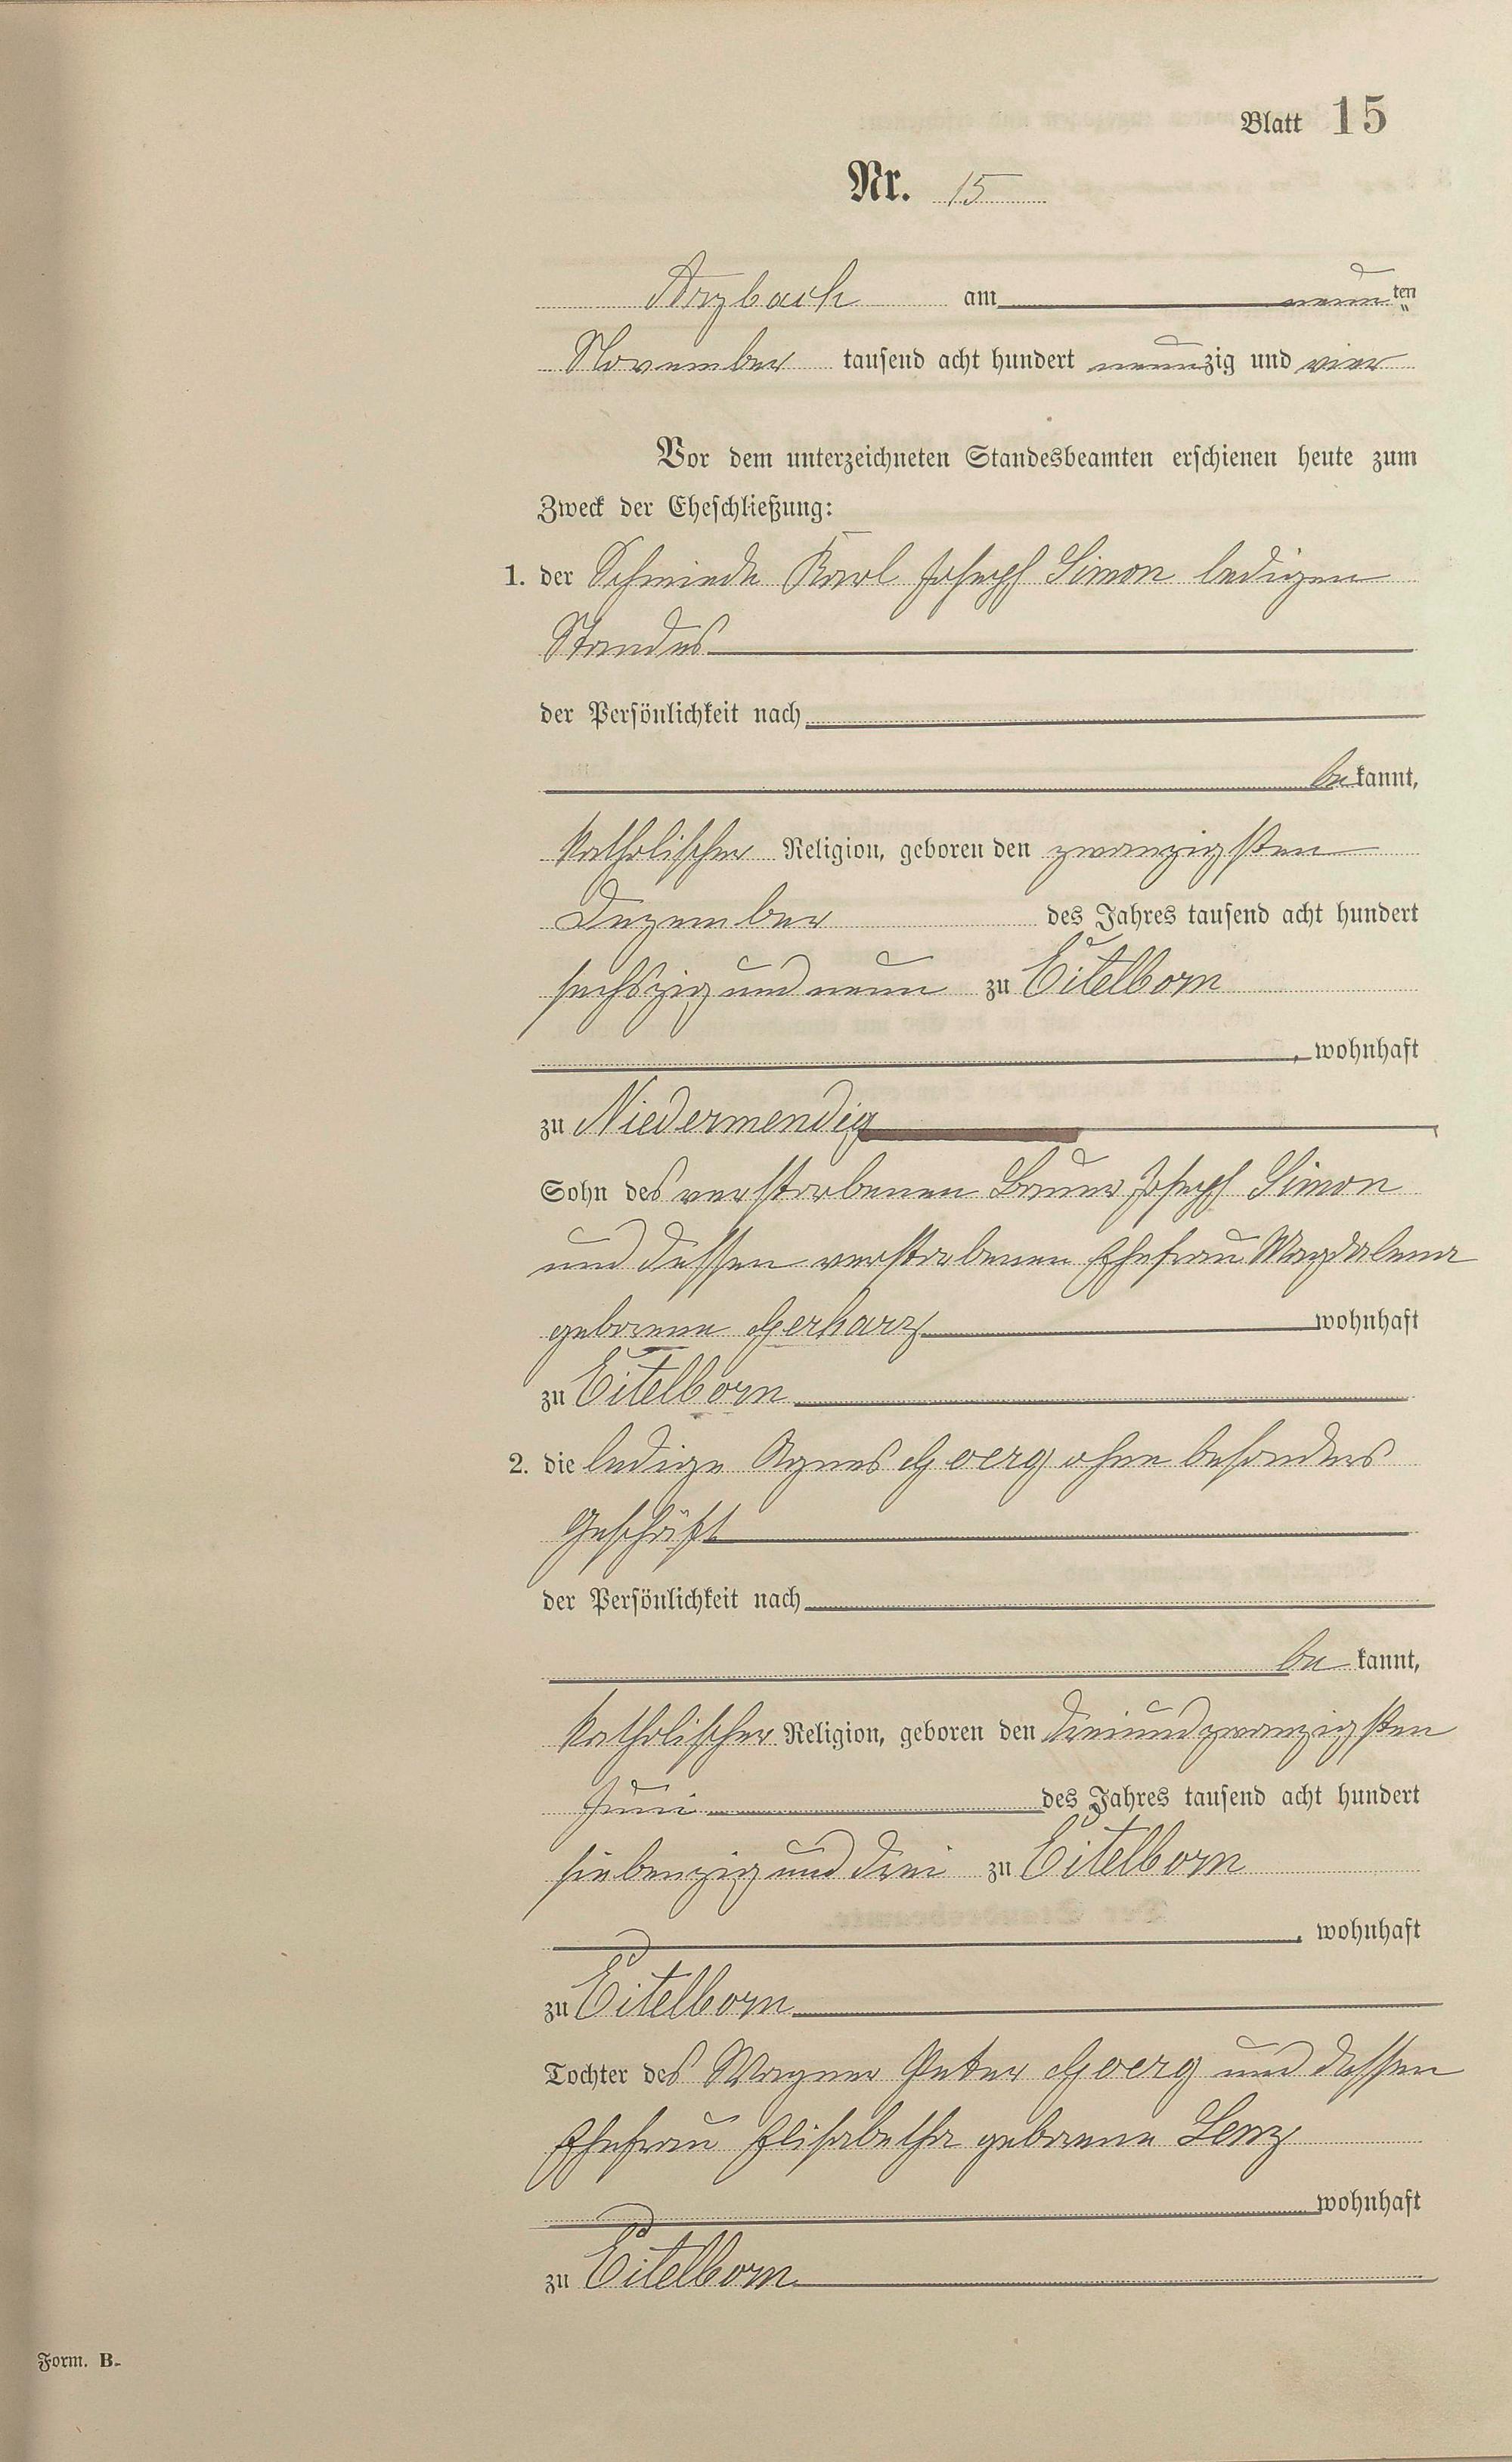 Blatt 15
Nr. 15
Arzbach am neunten
November tausend acht hundert neunzig und vier
Vor dem unterzeichneten Standesbeamten erschienen heute zum
Zweck der Eheschließung:
1. der Schmiede Karl Joseph Simon ledigen
Standes
der Persönlichkeit nach
bekannt,
katholischer Religion, geboren den zwanzigsten
Dezember des Jahres tausend acht hundert
sechszig und neun zu Eitelborn
, wohnhaft
zu Niedermendig
Sohn des verstorbenen Bauer Joseph Simon
und dessen verstorbenen Ehefrau Magdalena
geborene Gerharz wohnhaft
zu Eitelborn
2. die ledige Agnes Goerg ohne besonders
Geschäft
der Persönlichkeit nach
be kannt,
katholischer Religion, geboren den dreiundzwanzigsten
Juni des Jahres tausend acht hundert
siebenzig und drei zu Eitelborn
, wohnhaft
zu Eitelborn
Tochter des Wagner Peter Goerg und dessen
Ehefrau Elisabetha geborene Lenz
wohnhaft
zu Eitelborn
Form. B.